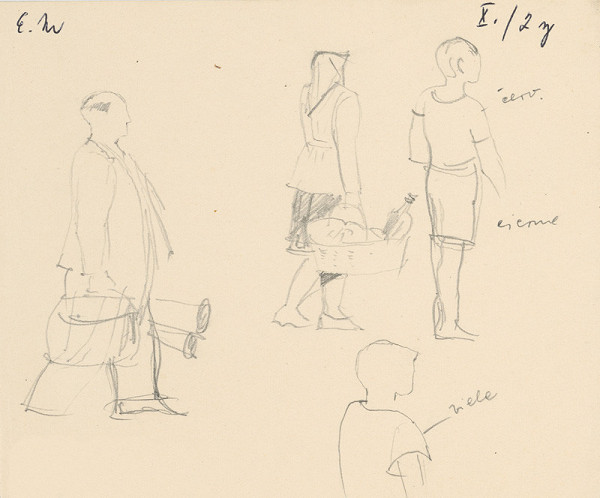 E. M
X./2
červ.
čierne
biele